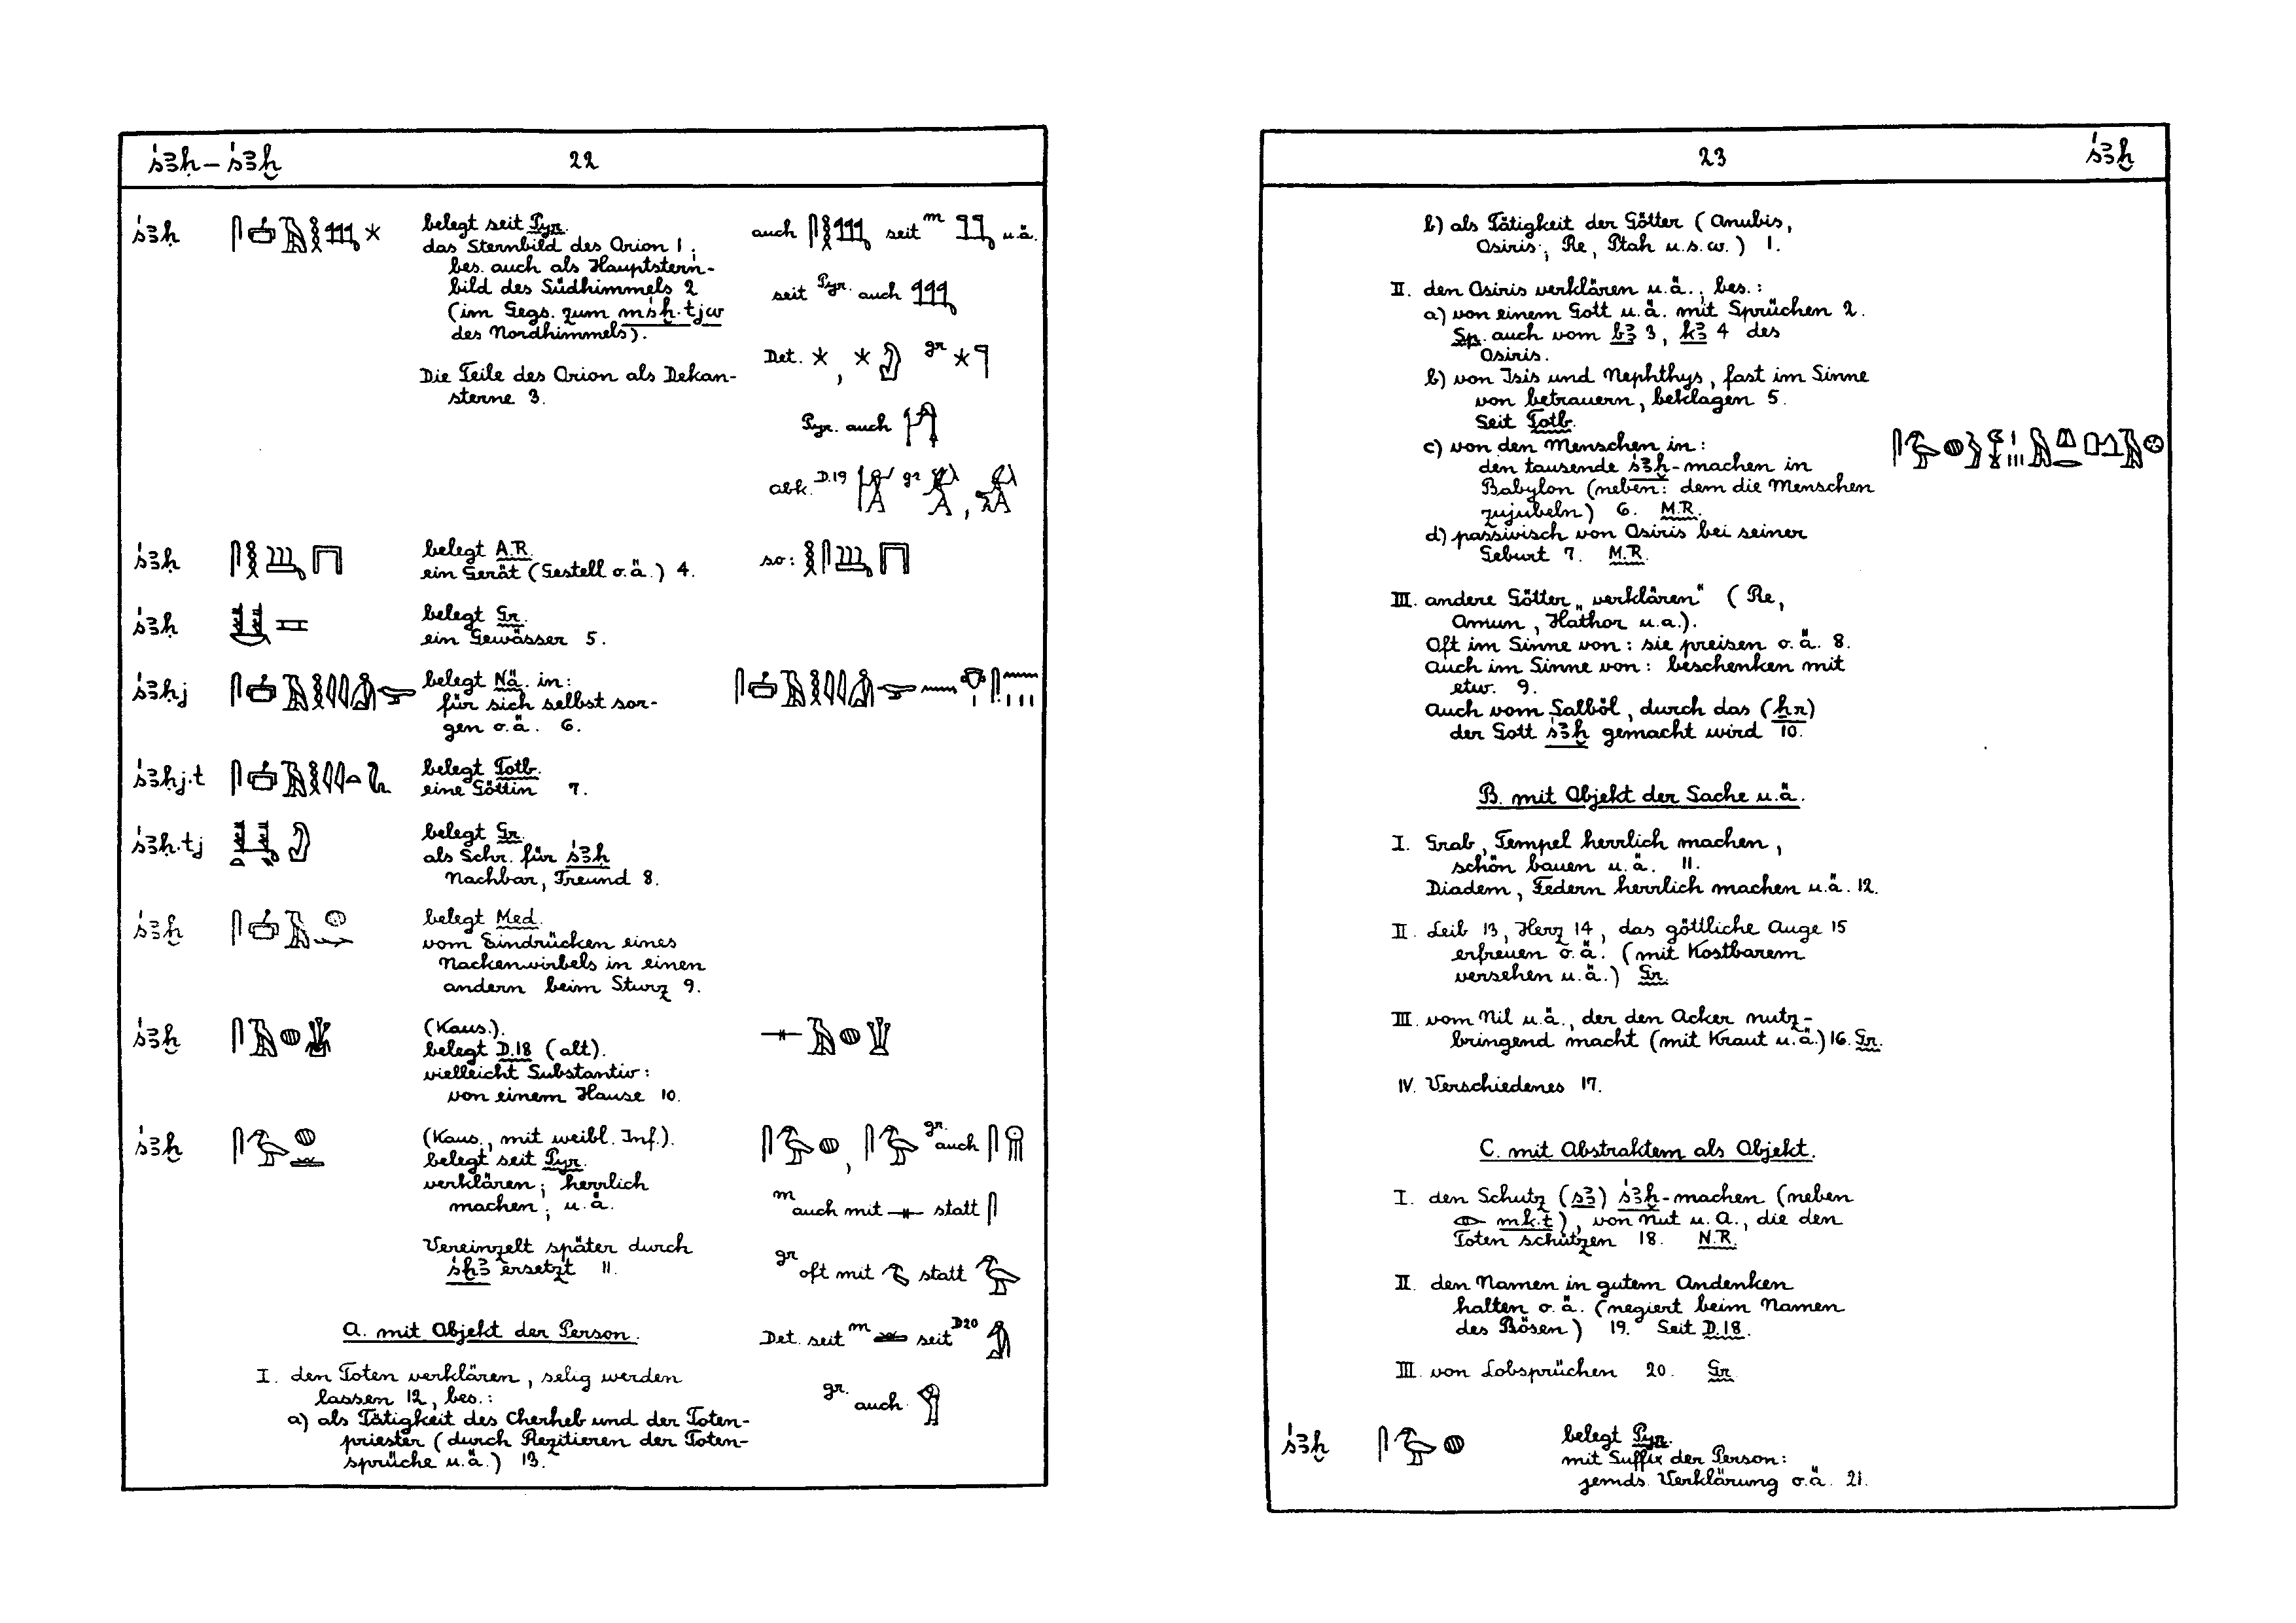 śꜣḥ – śꜣḫ 22
śꜣḥ belegt seit Pyr. auch seit m u.ä.
das Sternbild des Orion 1;
bes. auch als Hauptstern-
bild des Südhimmels 2 seit Pyr. auch
(im Gegs. zum mśḫ.tjw
des Nordhimmels).
Det. , gr
Die Teile des Orion als Dekan-
sterne 3.
Pyr. auch
abk. D.19 gr ,
śꜣḥ belegt A.R. so:
ein Gerät (Gestell o.ä.) 4.
śꜣḥ belegt Gr.
ein Gewässer 5.
śꜣḥj belegt Nä. in:
für sich selbst sor-
gen o.ä. 6.
śꜣḥj.t belegt Totb.
eine Göttin 7.
śꜣḥ.tj belegt Gr.
als Schr. für śꜣḥ
Nachbar, Freund 8.
śꜣḫ belegt Med.
vom Eindrücken eines
Nackenwirbels in einen
andern beim Sturz 9.
śꜣḫ (Kaus.).
belegt D.18 (alt).
vielleicht Substantiv:
von einem Hause 10.
śꜣḫ (Kaus., mit weibl. Inf.). , gr. auch
belegt seit Pyr.
verklären; herrlich
machen; u.ä. m auch mit statt
Vereinzelt später durch
śḫꜣ ersetzt 11. gr oft mit statt
A. mit Objekt der Person. Det. seit m seit D20
I. den Toten verklären, selig werden
lassen 12, bes.: gr. auch
a) als Tätigkeit des Cherheb und der Toten-
priester (durch Rezitieren der Toten-
sprüche u.ä.) 13.
23 śꜣḫ
b) als Tätigkeit der Götter (Anubis,
Osiris, Re, Ptah u.s.w.) 1.
II. den Osiris verklären u.ä., bes.:
a) von einem Gott u.ä. mit Sprüchen 2.
Sp. auch vom bꜣ 3, kꜣ 4 des
Osiris.
b) von Isis und Nephthys, fast im Sinne
von betrauern, beklagen 5.
Seit Totb.
c) von den Menschen in:
den tausende śꜣḫ-machen in
Babylon (neben: dem die Menschen
zujubeln) 6. M.R.
d) passivisch von Osiris bei seiner
Geburt 7. M.R.
III. andere Götter „verklären“ (Re,
Amun, Hathor u.a.).
Oft im Sinne von: sie preisen o.ä. 8.
Auch im Sinne von: beschenken mit
etw. 9.
Auch vom Salböl, durch das (ẖr)
der Gott śꜣḫ gemacht wird 10.
B. mit Objekt der Sache u.ä.
I. Grab, Tempel herrlich machen,
schön bauen u.ä. 11.
Diadem, Federn herrlich machen u.ä. 12.
II. Leib 13, Herz 14, das göttliche Auge 15
erfreuen o.ä. (mit Kostbarem
versehen u.ä.) Gr.
III. vom Nil u.ä., der den Acker nutz-
bringend macht (mit Kraut u.ä.) 16. Gr.
IV. Verschiedenes 17.
C. mit Abstraktem als Objekt.
I. den Schutz (sꜣ) śꜣḫ-machen (neben
mk.t), von Nut u. A., die den
Toten schützen 18. N.R.
II. den Namen in gutem Andenken
halten o.ä. (negiert beim Namen
des Bösen) 19. Seit D.18.
III. von Lobsprüchen 20. Gr.
śꜣḫ belegt Pyr.
mit Suffix der Person:
jemds. Verklärung o.ä. 21.